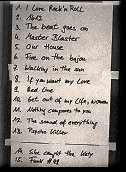 1. I Love Rock'n Roll
2. No12
3. The beat goes on
4. Master Blaster
5. Our House
6. Fire on the bajou
7. Walking in the sun
8. If you want my Love
9. Red One
10. Get out of my Life, woman
11. Nothing compares to you
12. The sound of everything
13. Psycho Killer
14. She caught the Katy
15. Funk #49